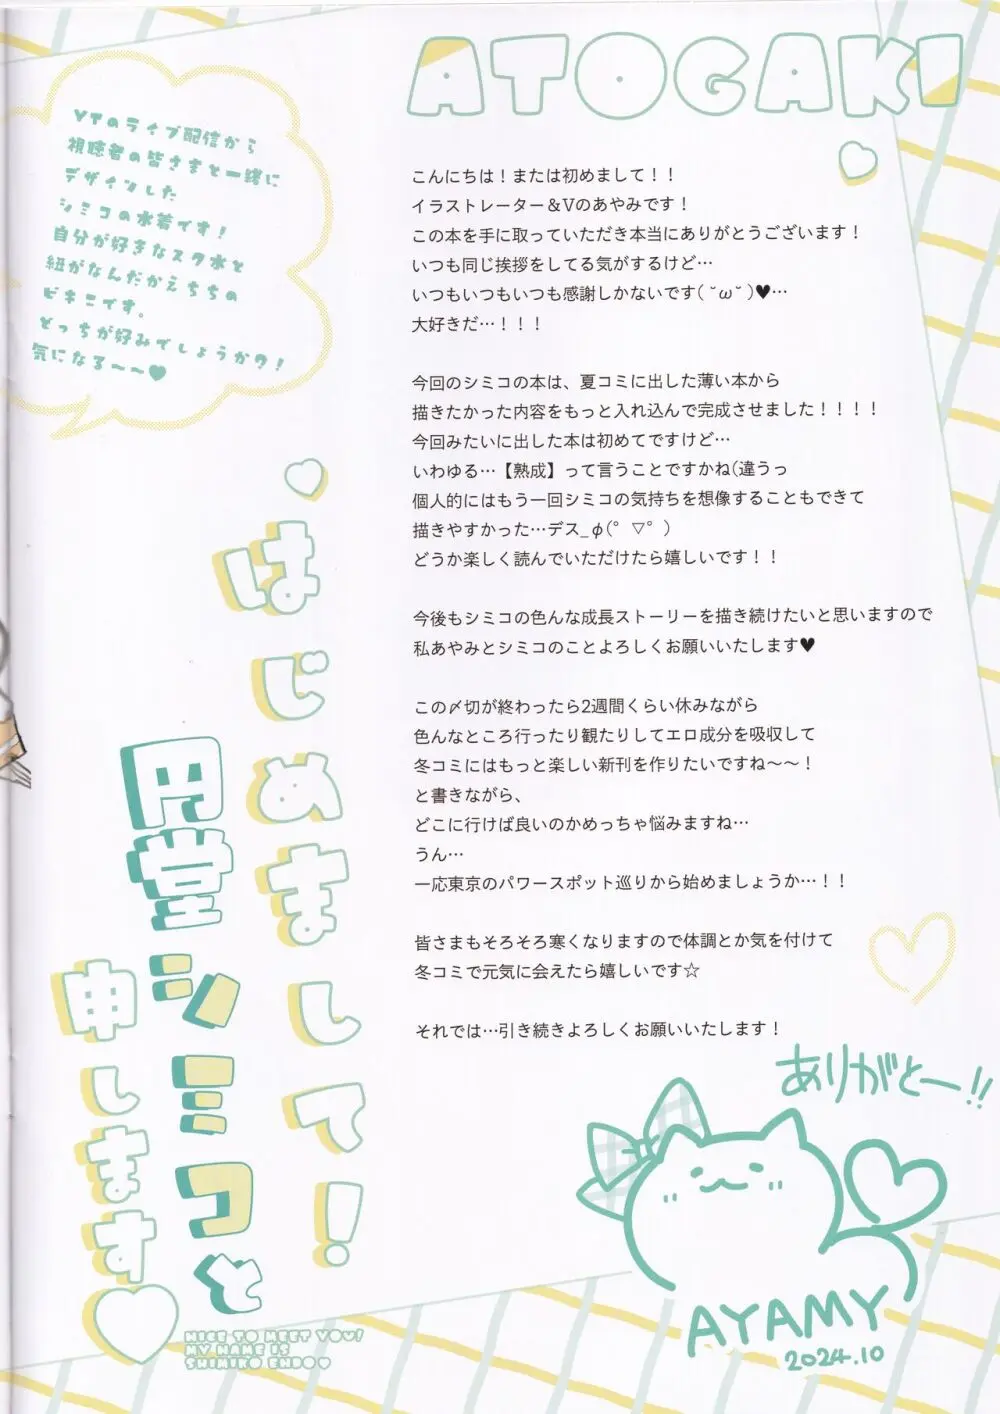 ATOGAKI
VTのライブ配信から
視聴者の皆さまと一緒に
デザインした
シミコの水着です！
自分が好きなスク水と
紐がなんだかえちちの
ビキニです。
どっちが好みでしょうか？！
気になる～～♥
こんにちは！または初めまして！！
イラストレーター＆Vのあやみです！
この本を手に取っていただき本当にありがとうございます！
いつも同じ挨拶をしてる気がするけど…
いつもいつもいつも感謝しかないです( ˘ω˘ )♥…
大好きだ…！！！
今回のシミコの本は、夏コミに出した薄い本から
描きたかった内容をもっと入れ込んで完成させました！！！！
今回みたいに出した本は初めてですけど…
いわゆる…【熟成】って言うことですかね(違うっ
個人的にはもう一回シミコの気持ちを想像することもできて
描きやすかった…デス_φ(ﾟ ▽ﾟ )
どうか楽しく読んでいただけたら嬉しいです！！
今後もシミコの色んな成長ストーリーを描き続けたいと思いますので
私あやみとシミコのことよろしくお願いいたします♥
この〆切が終わったら2週間くらい休みながら
色んなところ行ったり観たりしてエロ成分を吸収して
冬コミにはもっと楽しい新刊を作りたいですね～～！
と書きながら、
どこに行けば良いのかめっちゃ悩みますね…
うん…
一応東京のパワースポット巡りから始めましょうか…！！
皆さまもそろそろ寒くなりますので体調とか気を付けて
冬コミで元気に会えたら嬉しいです☆
それでは…引き続きよろしくお願いいたします！
はじめまして！
円堂シミコと
申します♡
NICE TO MEET YOU!
MY NAME IS
SHIMIKO ENDO♡
ありがとー!!
AYAMY
2024.10